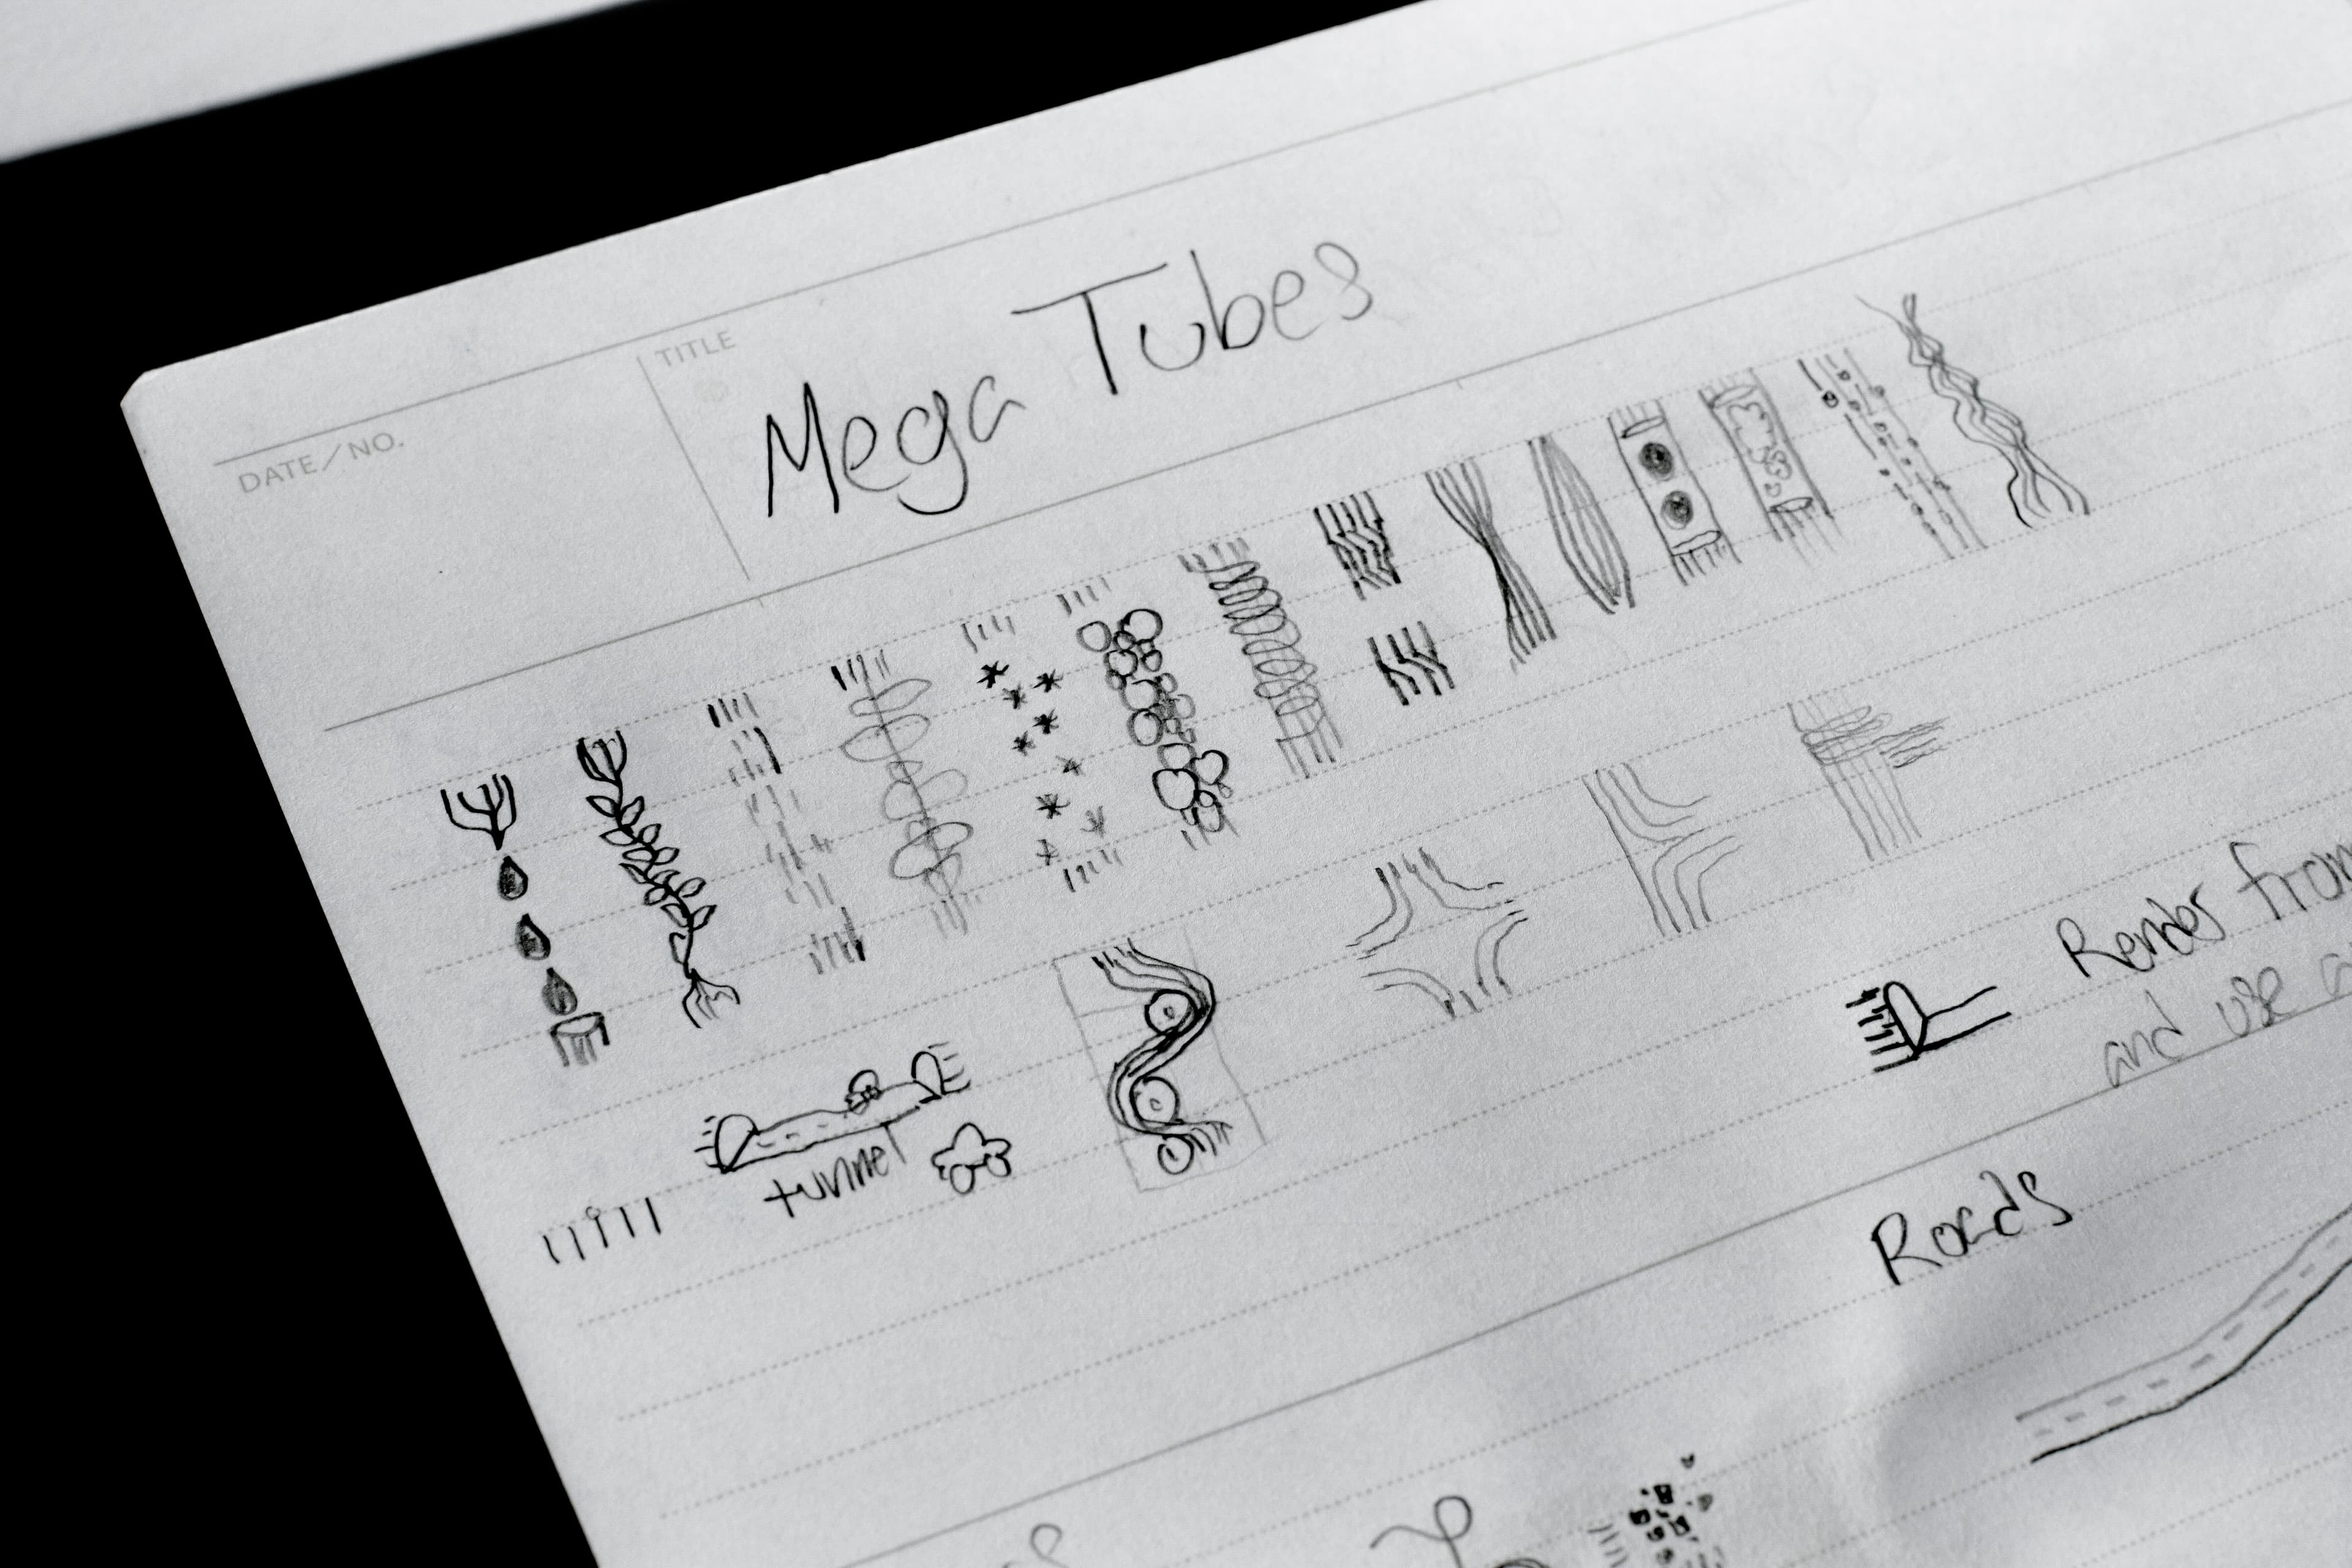 TITLE
Mega Tubes
DATE/NO.
Render from
and use a
tunnel
Roads